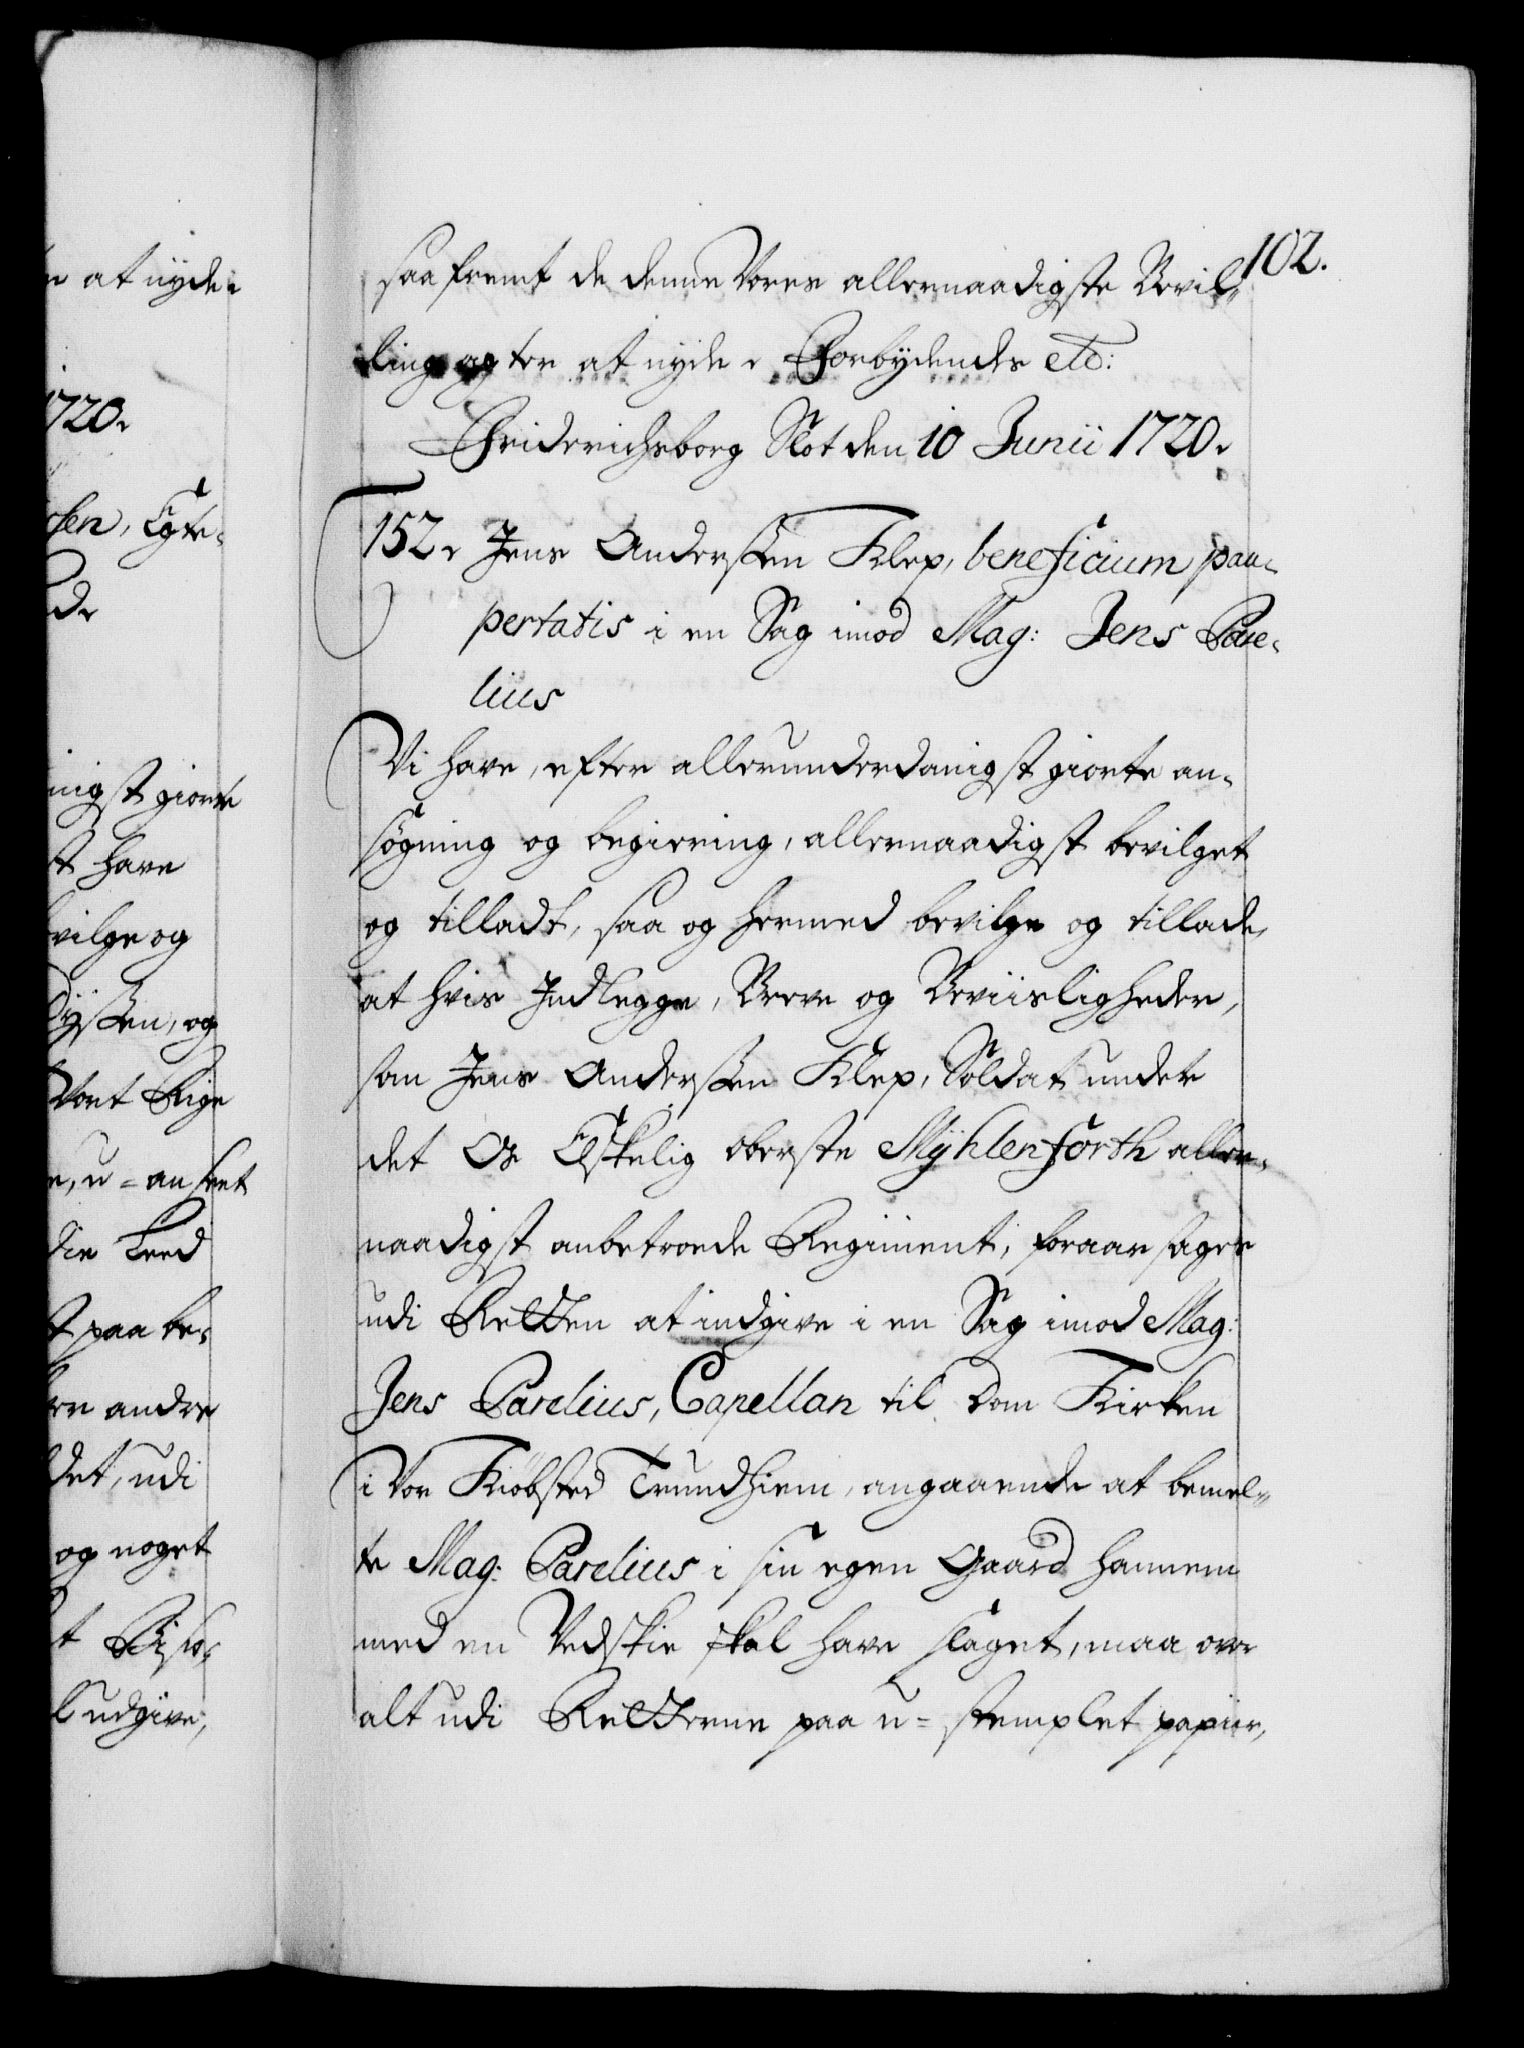 102.
saafremt de denne Vores allernaadigste Bevil-
ling agter at nyde. Forbydendes etc:
Friderichsborg Slot den 10 Junii 1720.
152. Jens Anderssen Klep, beneficium pau-
pertatis i en Sag imod Mag: Jens Pare-
lius
Vi have, efter allerunderdanigst giorte an-
søgning og begiering, allernaadigst bevilget
og tilladt, saa og hermed bevilge og tillade,
at hvis Indlegge, Breve og Beviisligheder,
som Jens Anderssen Klep, Soldat under
det Os Elskelig Oberste Mÿhlenforth aller-
naadigst anbetroede Regiment, foraarsages
udi Retten at indgive i en Sag imod Mag:
Jens Parelius, Capellan til Dom Kirken
i Vor Kiøbsted Trundhiem, angaaende at bemel-
te Mag: Parelius i sin egen Gaard hannem
med en Vedskie skal have slaget, maa over
alt udi Retterne paa u-stemplet papiir,
at nyde.
1720.
sen, Egte-
nigst giorte
st have
vilge og
og
Vort Rige
u-anseet
Leed
paa be-
andre
det, udi
og noget
t
udgive,